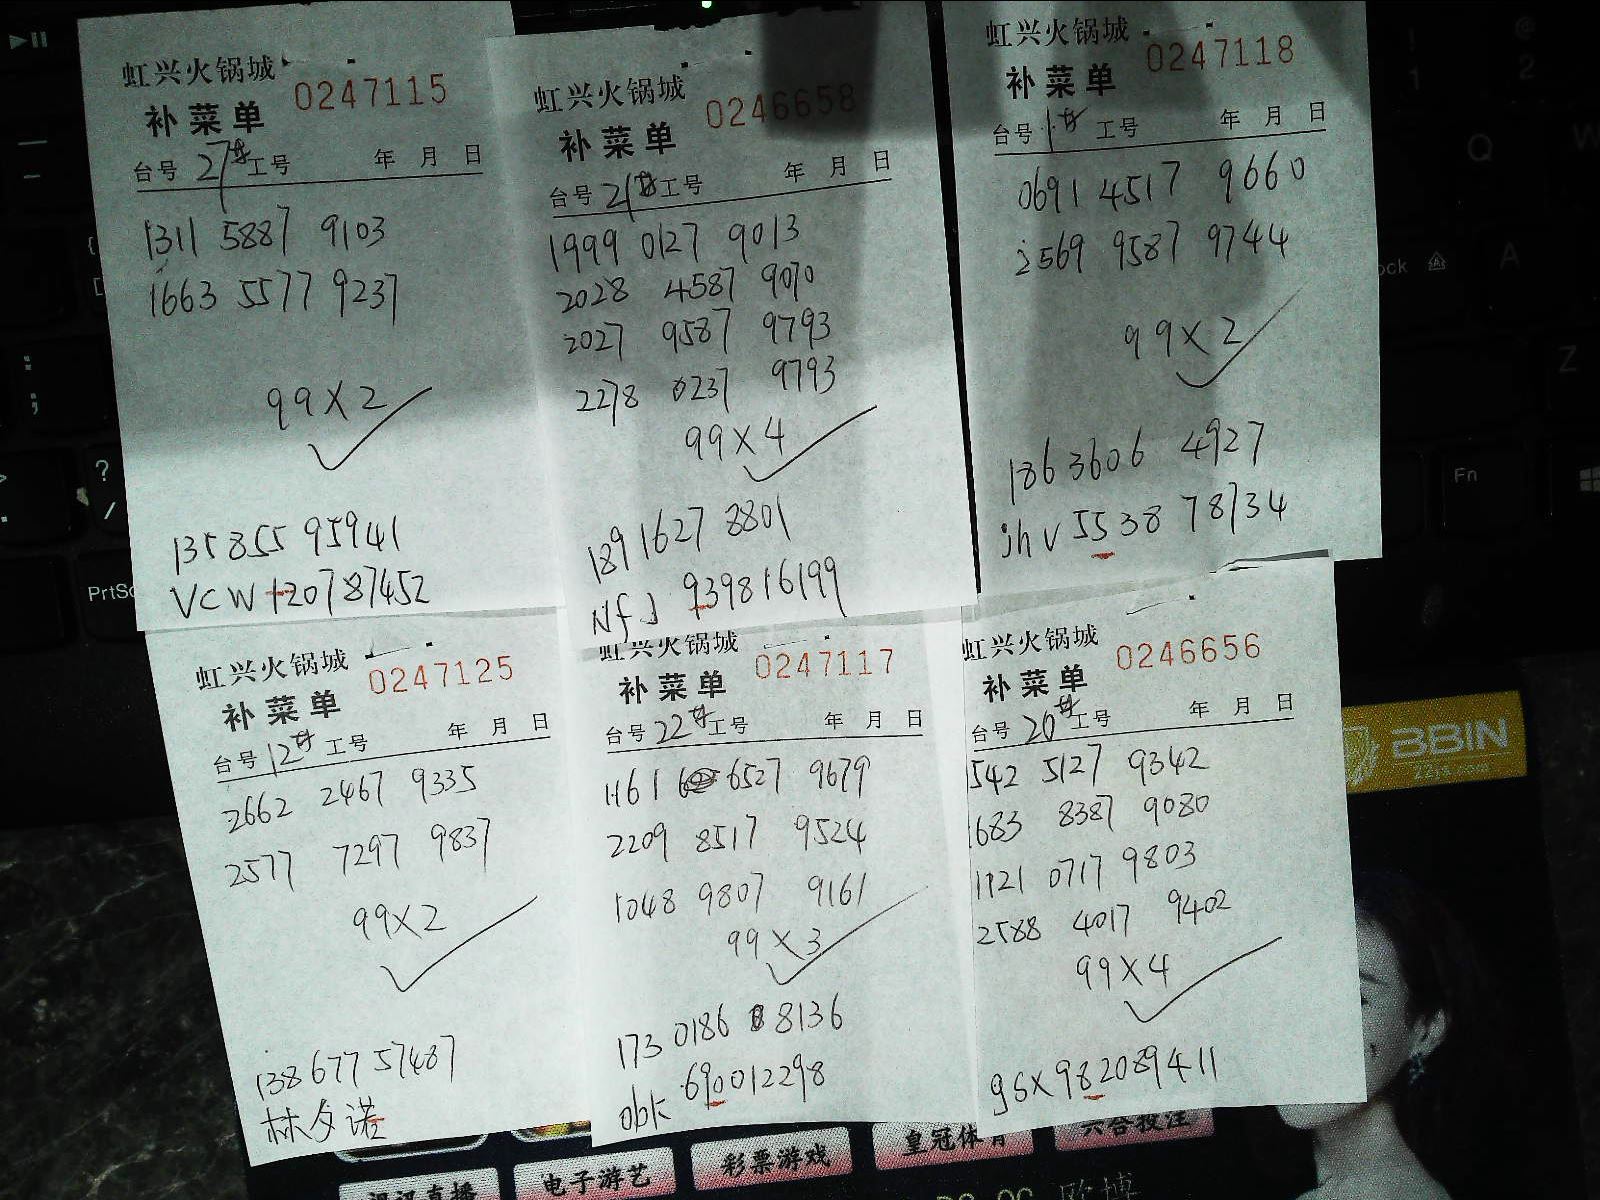 虹兴火锅城
0247115
补菜单
台号 27# 工号 年 月 日
1311 5887 9103
1663 5577 9237
99×2
135855 95941
VCW 120787452
虹兴火锅城
0246658
补菜单
台号 21# 工号 年 月 日
1999 0127 9013
2028 4587 9070
2027 9587 9793
2278 0237 9793
99×4
189 1627 8801
NfJ 939816199
虹兴火锅城
0247118
补菜单
台号 1# 工号 年 月 日
0691 4517 9660
2569 9587 9744
99×2
186 3606 4927
jhv 5538 78734
虹兴火锅城
0247125
补菜单
台号 12# 工号 年 月 日
2662 2467 9335
2577 7297 9837
99×2
138 677 57487
林夕诺
虹兴火锅城
0247117
补菜单
台号 22# 工号 年 月 日
1161 6527 9679
2209 8517 9524
1048 9807 9161
99×3
173 0186 8136
obk 690012298
虹兴火锅城
0246656
补菜单
台号 20# 工号 年 月 日
1542 5127 9342
1683 8387 9080
1121 0717 9803
2588 4017 9402
99×4
gsx 982089411
BBIN
电子游艺
彩票游戏
皇冠体育
六合投注
PrtSc
Fn
Q
A
Z